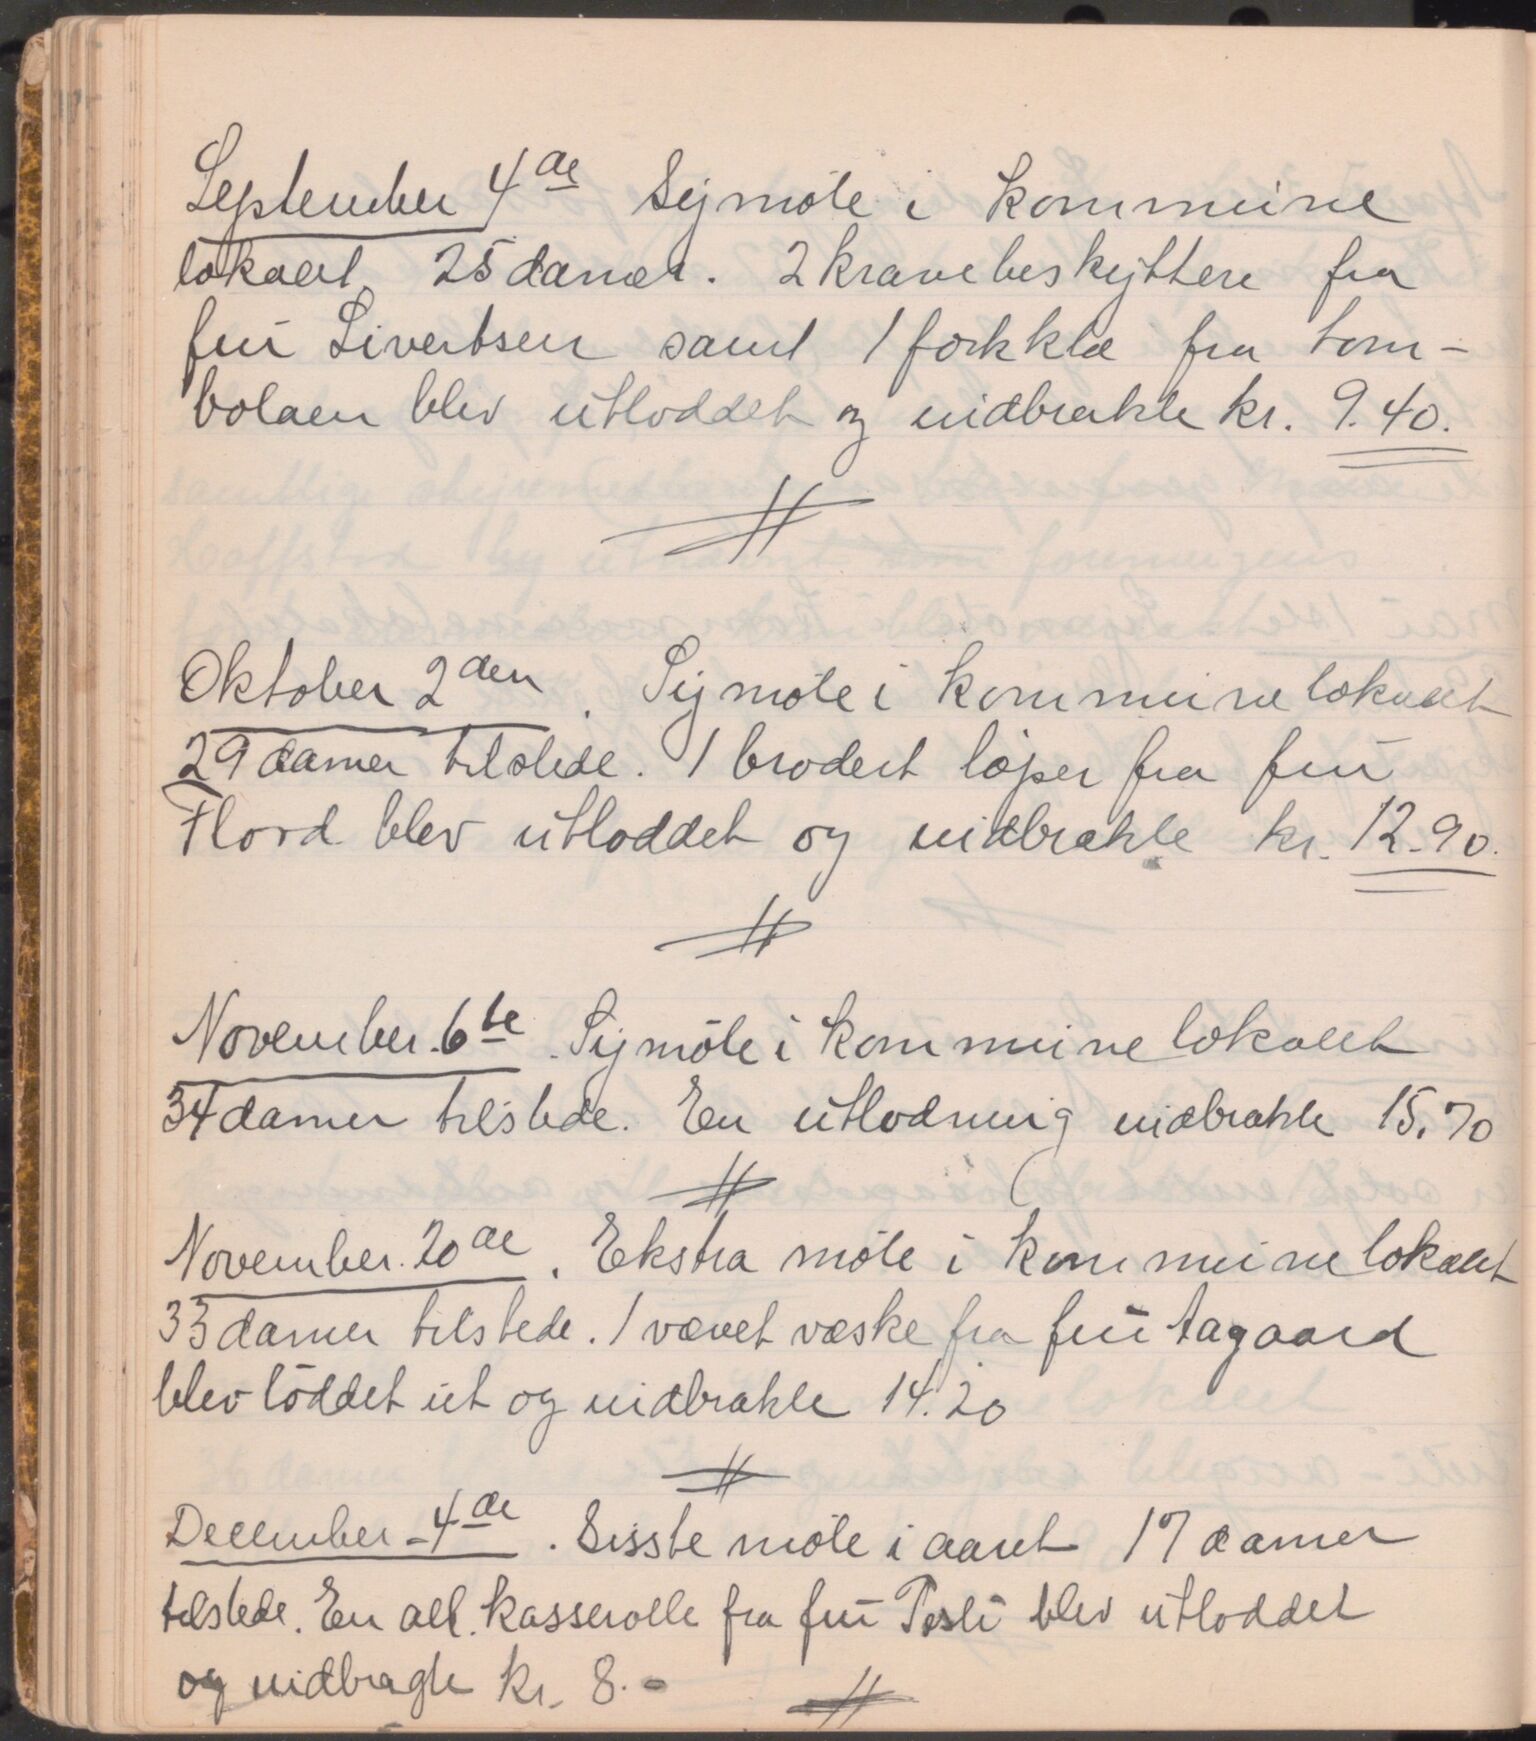 September 4de Symöte i kommune
lokalet 25 damer. 2 kravebeskyttere fra
fru Sivertsen samt 1 forkklæ fra tom-
bolaen blev utloddet og inidbrakte kr. 9.40.
Oktober 2den. Symöte i kommunelokalet
29 damer tilstede. 1 brodert løper fra fru
Flord blev utloddet og inidbrakte kr. 12.90.
November. 6te. Symöte i kommunelokalet
34 damer tilstede. En utlodning inidbrakte 15.70
November. 20de. Ekstra möte i kommunelokalet
33 damer tilstede. 1 vævet væske fra fru Aagaard
blev loddet ut og inidbrakte 14.20
December - 4de. Sisste möte i aaret 17 damer
tilstede. En all. kasserolle fra fru blev utloddet
og inidbragte kr. 8.-